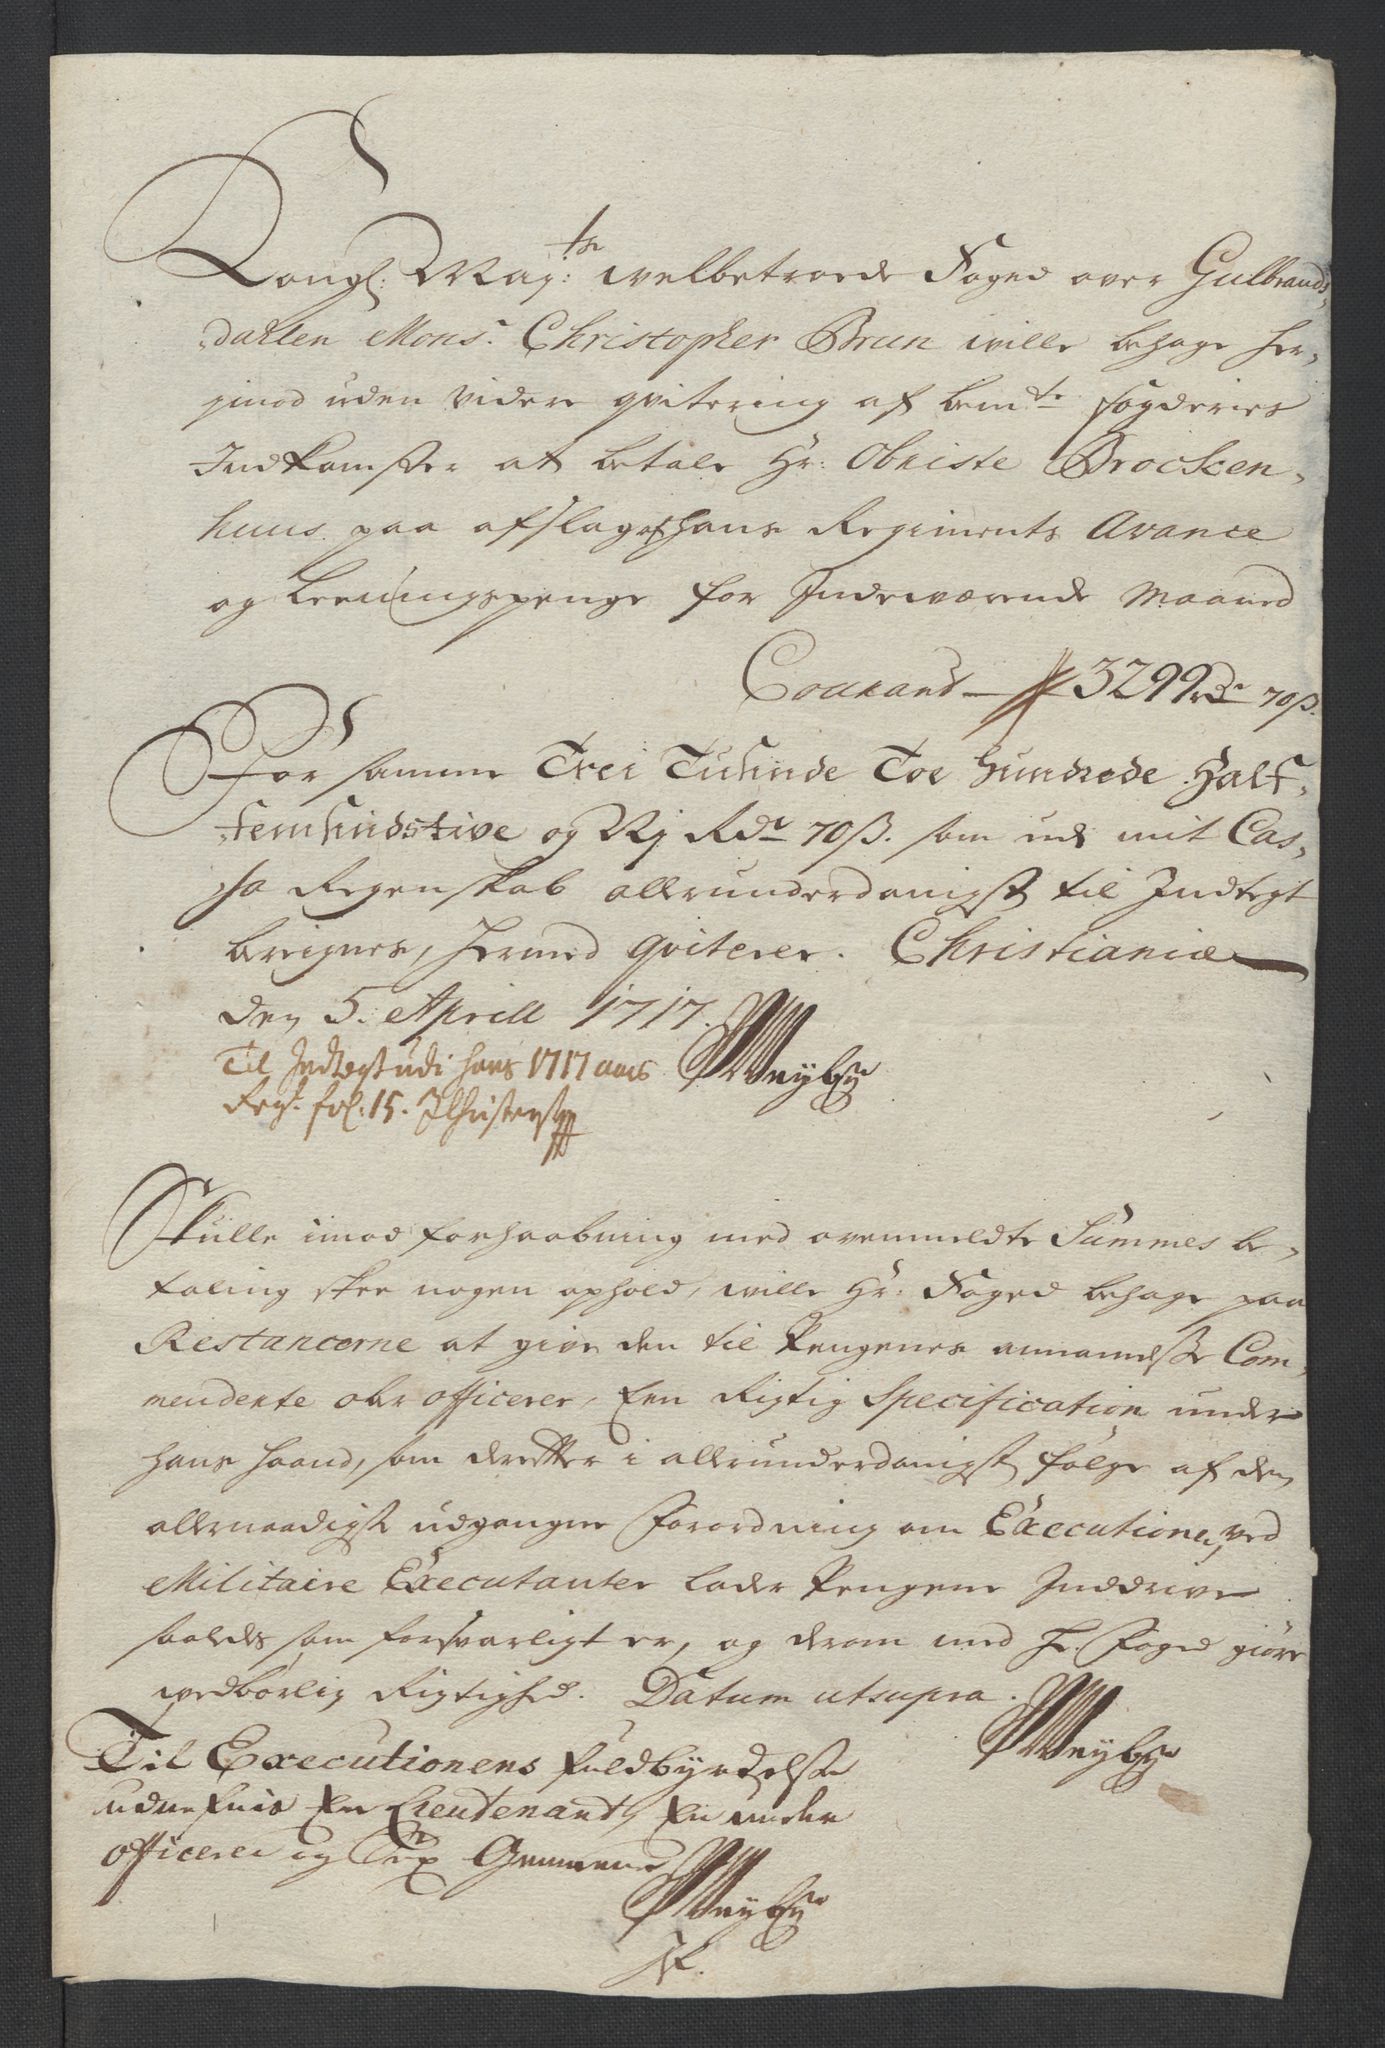 Kongl: May:ts welbetroede Foged over Gulbrands-
dahlen Mons.r Christopher Brun wille behage her-
imod uden videre qvitering af bem.te fogderies
Indkomster at betale Hr: Obriste Brocken-
huus paa afslag af hans Regiments Avance
og Leeningspenge for Indeværende Maaned
Courant — 3299 Rd.r 70 ß.
For samme Trei Tusinde Toe Hundrede Half-
femsindstive og Nj Rd.r 70 ß. som udi mit Cas-
sa Regenskab allerunderdanigst til Indtegt
bereignes, hermed qviterer. Christiania
den 5. Aprill 1717.
Til Indtegt udi hans 1717 aars
Regs. fol: 15.
Skulle imod forhaabning med ovenmeldte Summes be-
taling skee nogen ophold, wille Hr: Foged behage paa
Restancerne at give den til Pengenes annammelse Com-
menderte ober officerer, Een Rigtig Specification under
hans haand, som derefter i allerunderdanigst følge af den
allernaadigst udgangne Forordning om Executioner, ved
Militaire Executanter lader Pengene Inddrive
saaledes som forsvarligt er, og derom med Hr. Foged giøre
vedbørlig Rigtighed. Datum ut supra.
Til Executionens fuldbyrdelse
Lieutenant, En under
officerer og Sex Gemeene